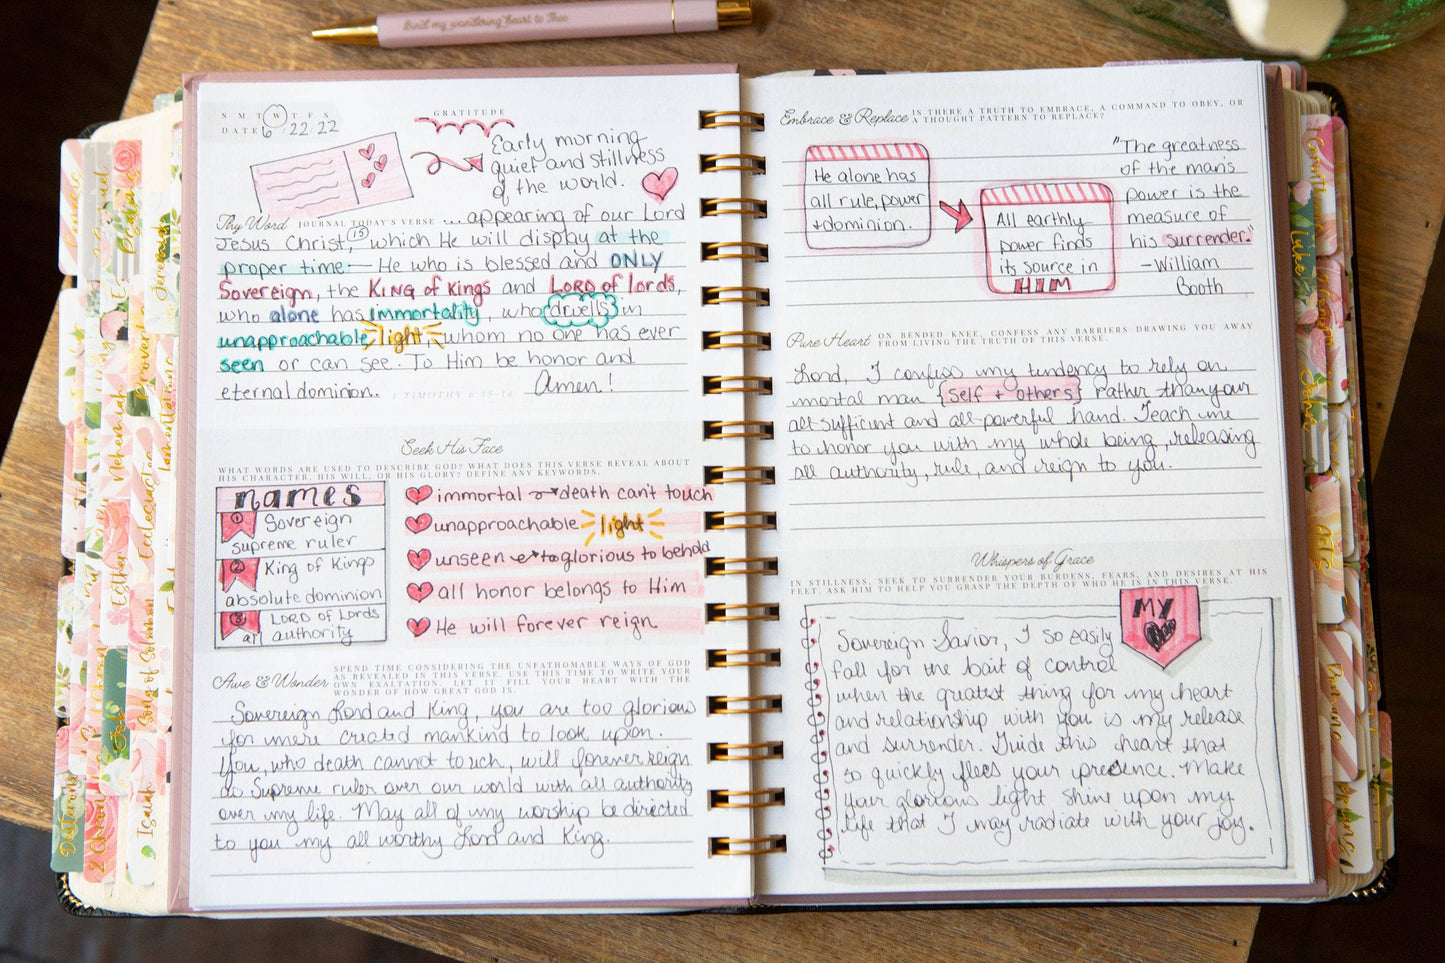 Bind my wandering heart to Thee
S M T W T F S
DATE 6 / 22 / 22
GRATITUDE
Early morning
quiet and stillness
of the world.
Thy Word JOURNAL TODAY'S VERSE ... appearing of our Lord
Jesus Christ, (15) which He will display at the
proper time - He who is blessed and ONLY
Sovereign, the KING of KINGS and LORD of lords,
who alone has immortality, who dwells in
unapproachable light, whom no one has ever
seen or can see. To Him be honor and
eternal dominion. 1 TIMOTHY 6:15-16 Amen!
Seek His Face
WHAT WORDS ARE USED TO DESCRIBE GOD? WHAT DOES THIS VERSE REVEAL ABOUT
HIS CHARACTER, HIS WILL, OR HIS GLORY? DEFINE ANY KEYWORDS.
names
1 Sovereign
supreme ruler
2 King of Kings
absolute dominion
3 LORD of Lords
all authority
immortal → death can't touch
unapproachable light
unseen → to glorious to behold
all honor belongs to Him
He will forever reign
Awe & Wonder SPEND TIME CONSIDERING THE UNFATHOMABLE WAYS OF GOD
AS REVEALED IN THIS VERSE. USE THIS TIME TO WRITE YOUR
OWN EXALTATION. LET IT FILL YOUR HEART WITH THE
WONDER OF HOW GREAT GOD IS.
Sovereign Lord and King, you are too glorious
for mere created mankind to look upon.
You, who death cannot touch, will forever reign
as Supreme ruler over our world with all authority
over my life. May all of my worship be directed
to you my all worthy Lord and King.
Embrace & Replace IS THERE A TRUTH TO EMBRACE, A COMMAND TO OBEY, OR
A THOUGHT PATTERN TO REPLACE?
He alone has
all rule, power
+ dominion.
All earthly
power finds
its source in
HIM
"The greatness
of the man's
power is the
measure of
his surrender."
-William
Booth
Pure Heart ON BENDED KNEE, CONFESS ANY BARRIERS DRAWING YOU AWAY
FROM LIVING THE TRUTH OF THIS VERSE.
Lord, I confess my tendency to rely on
mortal man {self + others} rather than your
all-sufficient and all-powerful hand. Teach me
to honor you with my whole being, releasing
all authority, rule, and reign to you.
Whispers of Grace
IN STILLNESS, SEEK TO SURRENDER YOUR BURDENS, FEARS, AND DESIRES AT HIS
FEET. ASK HIM TO HELP YOU GRASP THE DEPTH OF WHO HE IS IN THIS VERSE.
MY
Sovereign Savior, I so easily
fall for the bait of control
when the greatest thing for my heart
and relationship with you is my release
and surrender. Guide this heart that
so quickly flees your presence. Make
your glorious light shine upon my
life that I may radiate with your joy.
Exodus
Jeremiah
Nehemiah
Proverbs
Lamentations
Esther
Ecclesiastes
Song of Solomon
Isaah
2 Chron
Luke
John
Acts
Romans